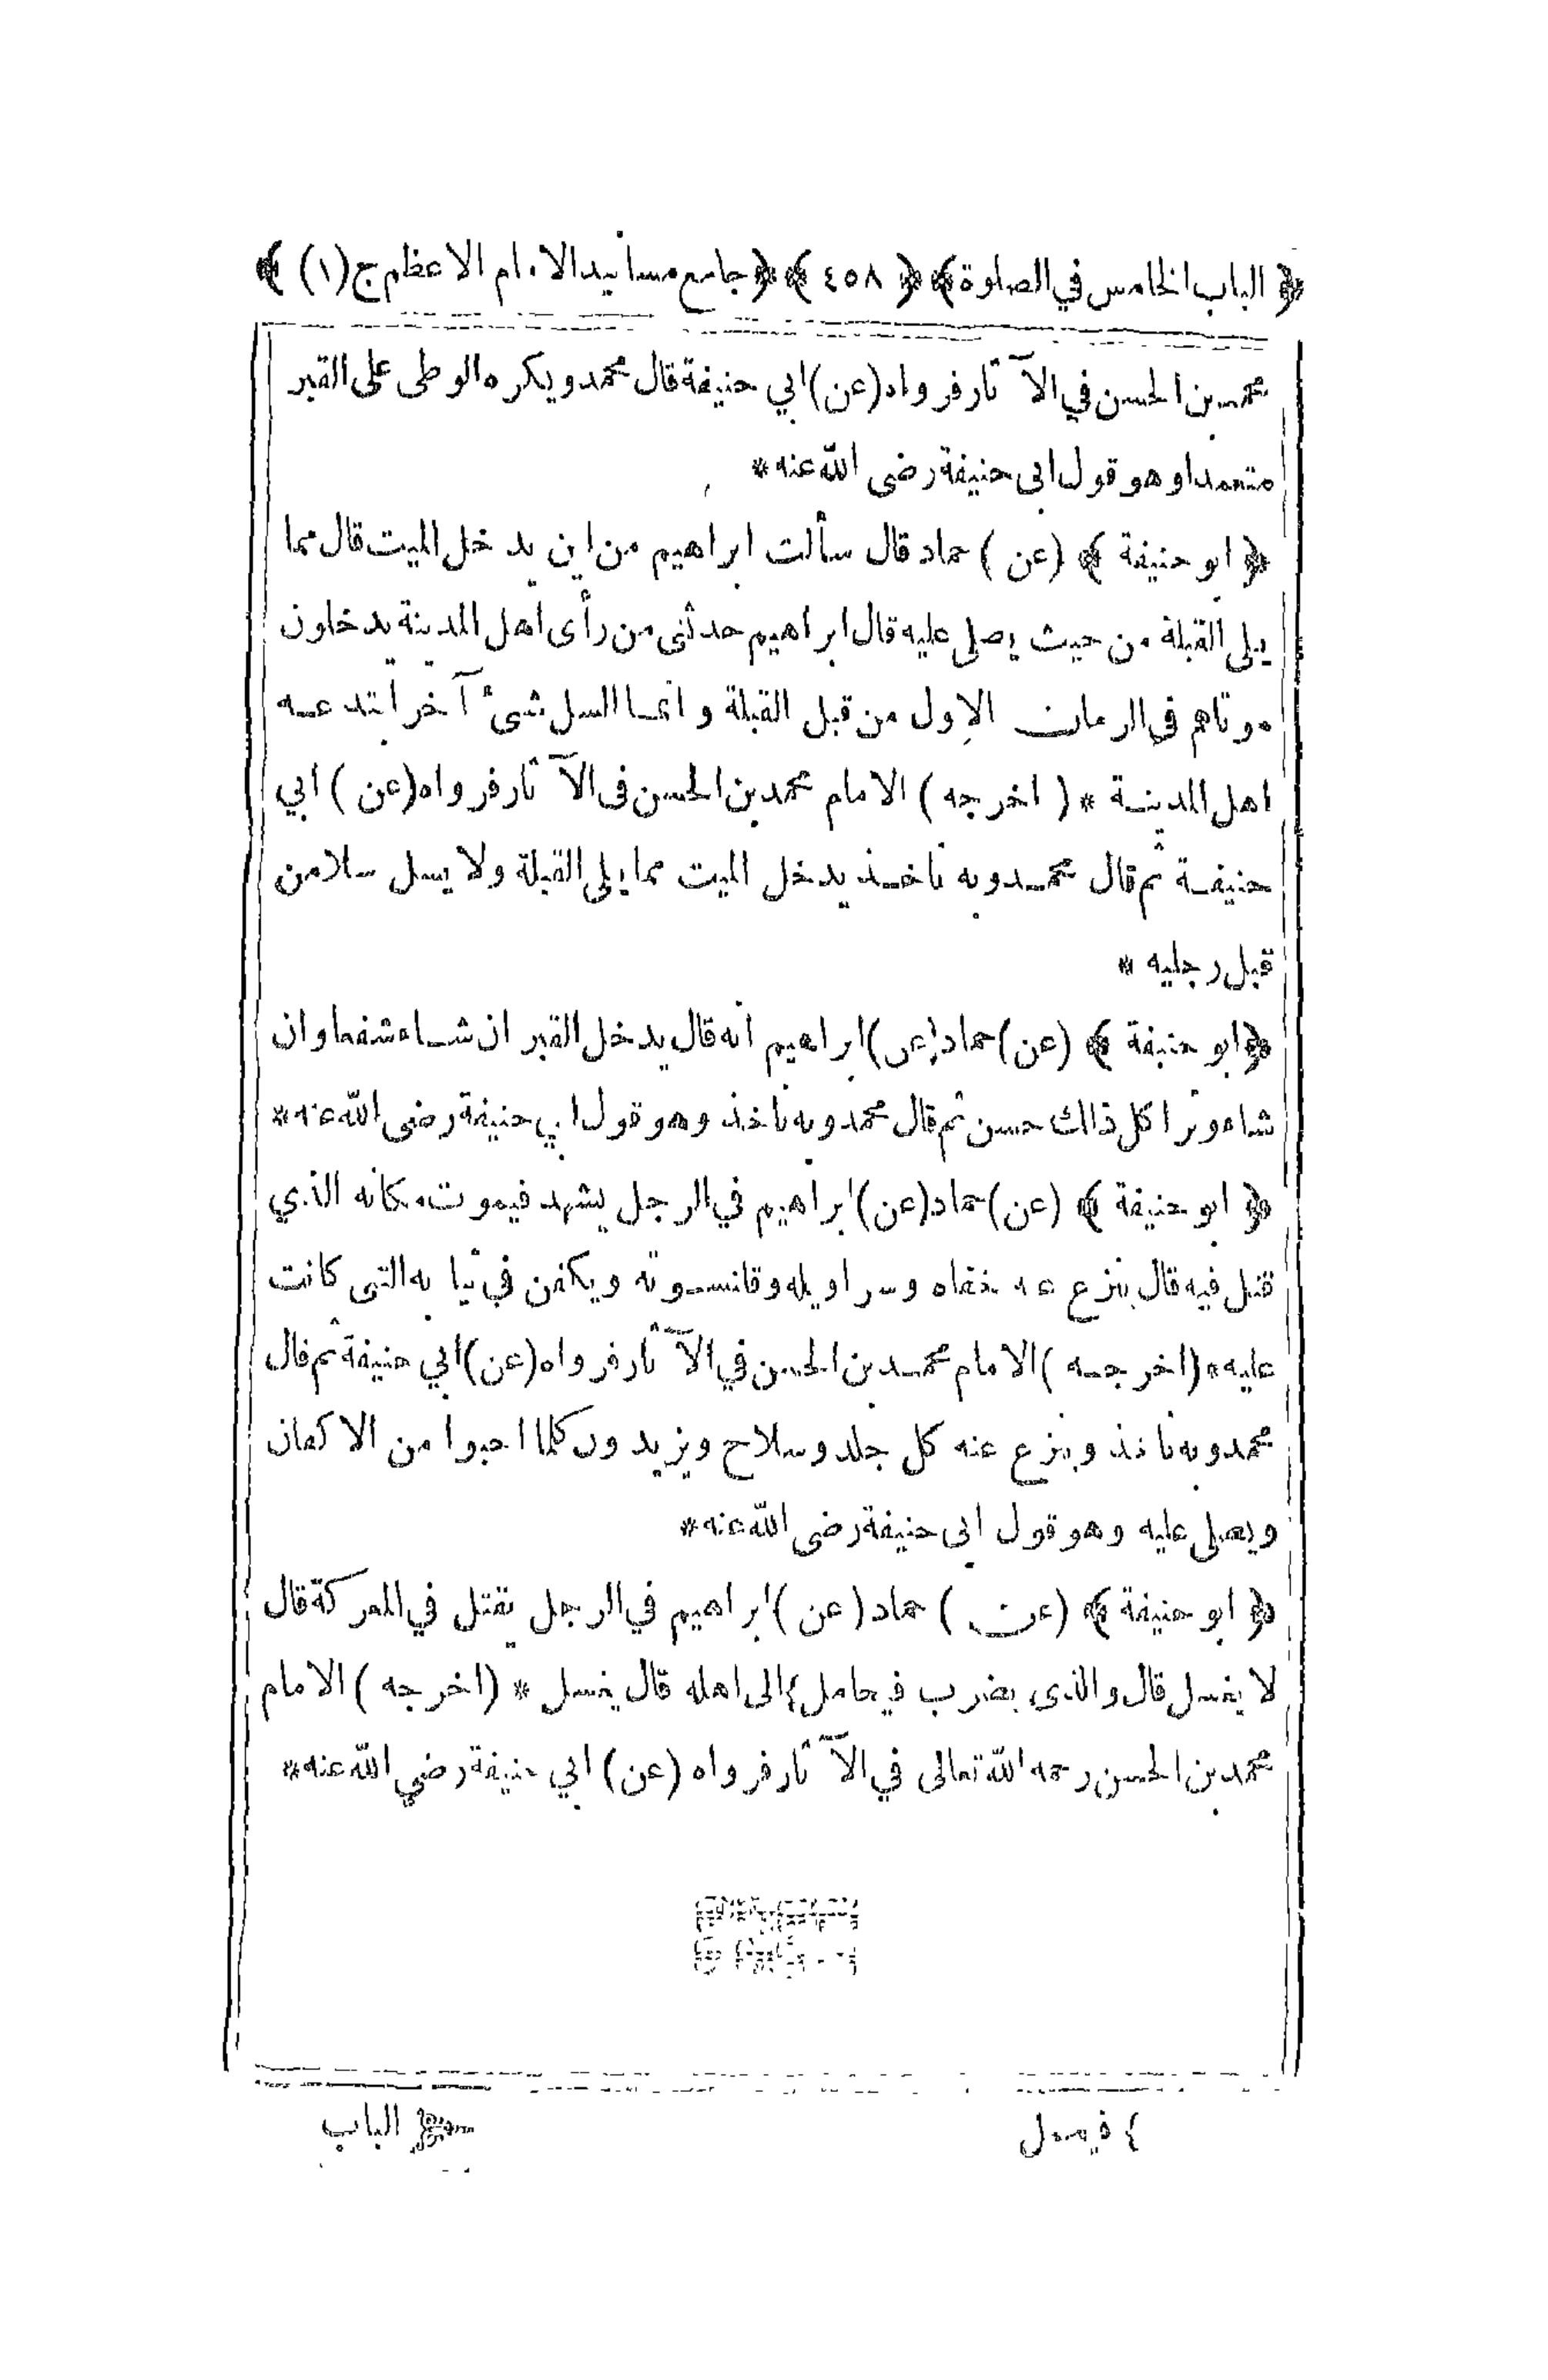 ﴿ الباب الخامس في الصلوة ﴾ ﴿ ٤٥٨ ﴾ ﴿ جامع مسانيد الامام الاعظم ج (١) ﴾
محمد بن الحسن في الآثار فرواه (عن) ابي حنيفة قال محمد ويكره الوطى على القبر
متعمدا وهو قول ابى حنيفة رضى الله عنه *
﴿ ابو حنيفة ﴾ (عن) حماد قال سألت ابراهيم من اين يدخل الميت قال مما
يلى القبلة من حيث يصلى عليه قال ابراهيم حدثنى من رأى اهل المدينة يدخلون
موتاهم فى الزمان الاول من قبل القبلة وانما السل شىء آخر ابتدعه
اهل المدينة * (اخرجه) الامام محمد بن الحسن فى الآثار فرواه (عن) ابي
حنيفة ثم قال محمد وبه ناخذ يدخل الميت مما يلى القبلة ولا يسل سلا من
قبل رجليه *
﴿ ابو حنيفة ﴾ (عن) حماد (عن) ابراهيم انه قال يدخل القبر ان شاء شفعا وان
شاء وترا كل ذالك حسن ثم قال محمد وبه ناخذ وهو قول ابي حنيفة رضى الله عنه *
﴿ ابو حنيفة ﴾ (عن) حماد (عن) ابراهيم في الرجل يشهد فيموت مكانه الذي
قتل فيه قال ينزع عنه خفاه وسراويله وقلنسوته ويكفن في ثيابه التى كانت
عليه * (اخرجه) الامام محمد بن الحسن في الآثار فرواه (عن) ابي حنيفة ثم قال
محمد وبه ناخذ وينزع عنه كل جلد وسلاح ويزيدون كلما احبوا من الاكفان
ويصلى عليه وهو قول ابى حنيفة رضى الله عنه *
﴿ ابو حنيفة ﴾ (عن) حماد (عن) ابراهيم في الرجل يقتل في المعركة قال
لا يغسل قال والذى يضرب فيحامل ٤ الى اهله قال يغسل * (اخرجه) الامام
محمد بن الحسن رحمه الله تعالى في الآثار فرواه (عن) ابي حنيفة رضي الله عنه *
٤ فيحمل
الباب